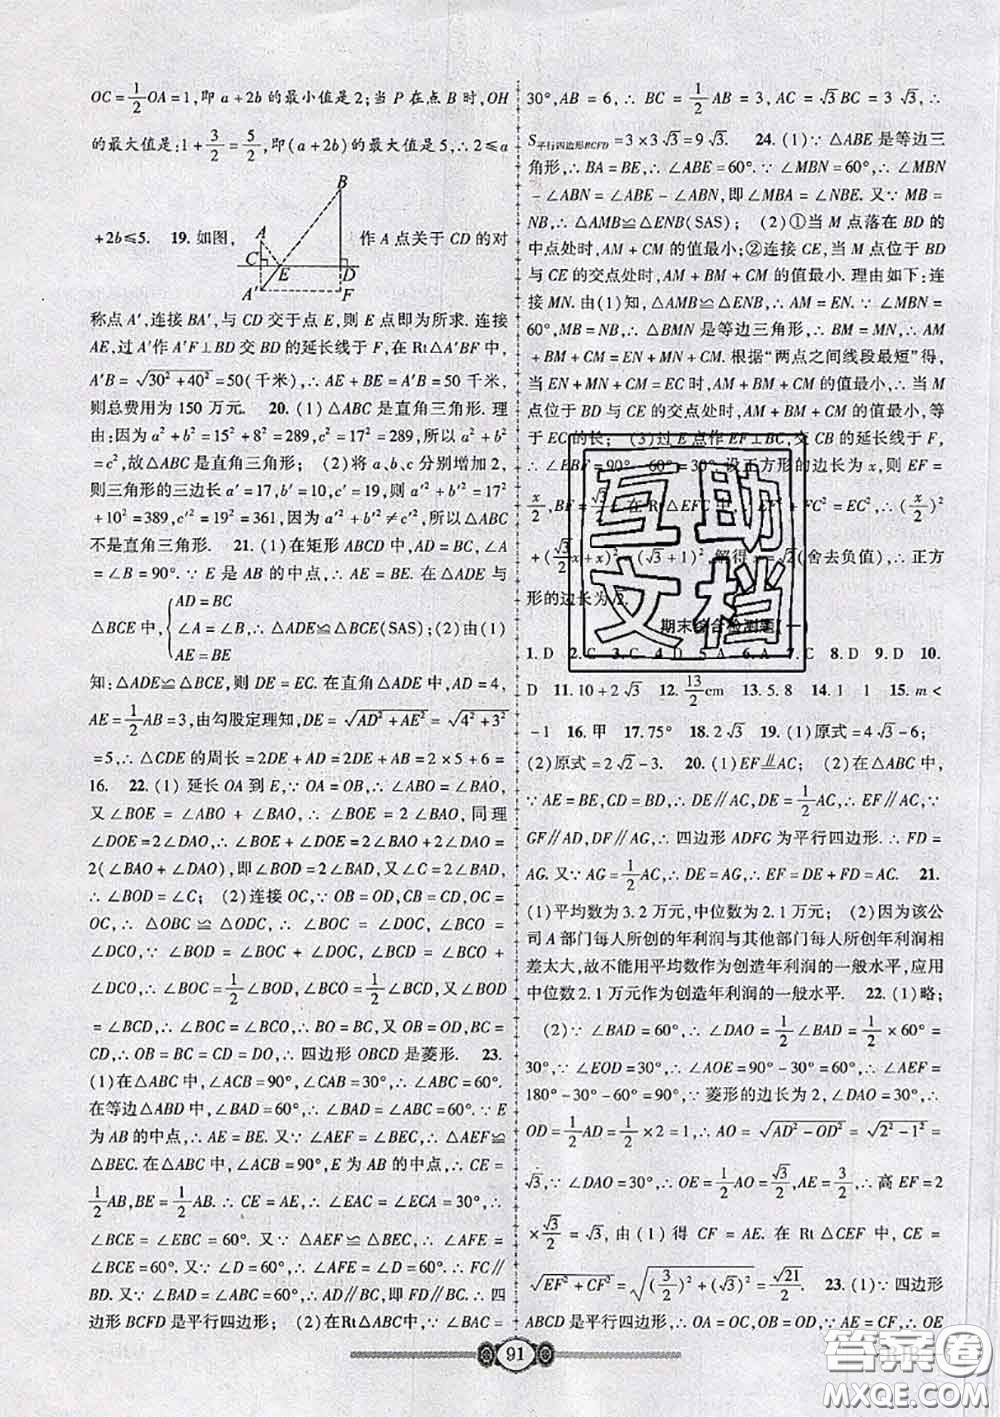 OC=1/2OA=1,即a+2b的最小值是2;当P在点B时,OH
的最大值是:1+3/2=5/2,即(a+2b)的最大值是5,∴2≤a
+2b≤5. 19.如图, 作A点关于CD的对
B
A
C
E
D
A′
F
称点A′,连接BA′,与CD交于点E,则E点即为所求.连接
AE,过A′作A′F⊥BD交BD的延长线于F,在Rt△A′BF中,
A′B=√(30²+40²)=50(千米),∴AE+BE=A′B=50千米,
则总费用为150万元. 20.(1)△ABC是直角三角形.理
由:因为a²+b²=15²+8²=289,c²=17²=289,所以a²+b²
=c²,故△ABC是直角三角形;(2)将a、b、c分别增加2,
则三角形的三边长a′=17,b′=10,c′=19,则a′²+b′²=17²
+10²=389,c′²=19²=361,因为a′²+b′²≠c′²,所以△ABC
不是直角三角形. 21.(1)在矩形ABCD中,AD=BC,∠A
=∠B=90°.∵E是AB的中点,∴AE=BE.在△ADE与
△BCE中,{AD=BC ∠A=∠B,∴△ADE≌△BCE(SAS);(2)由(1) AE=BE
知:△ADE≌△BCE,则DE=EC.在直角△ADE中,AD=4,
AE=1/2AB=3,由勾股定理知,DE=√(AD²+AE²)=√(4²+3²)
=5,∴△CDE的周长=2DE+AD=2DE+AB=2×5+6=
16. 22.(1)延长OA到E,∵OA=OB,∴∠ABO=∠BAO,
又∵∠BOE=∠ABO+∠BAO,∴∠BOE=2∠BAO,同理
∠DOE=2∠DAO,∴∠BOE+∠DOE=2∠BAO+2∠DAO=
2(∠BAO+∠DAO),即∠BOD=2∠BAD,又∠C=2∠BAD,
∴∠BOD=∠C;(2)连接OC,∵OB=OD,CB=CD,OC=
OC,∴△OBC≌△ODC,∴∠BOC=∠DOC,∠BCO=
∠DCO,∵∠BOD=∠BOC+∠DOC,∠BCD=∠BCO+
∠DCO,∴∠BOC=1/2∠BOD,∠BCO=1/2∠BCD,又∠BOD
=∠BCD,∴∠BOC=∠BCO,∴BO=BC,又OB=OD,BC=
CD,∴OB=BC=CD=DO,∴四边形OBCD是菱形. 23.
(1)在△ABC中,∠ACB=90°,∠CAB=30°,∴∠ABC=60°.
在等边△ABD中,∠BAD=60°,∴∠BAD=∠ABC=60°.∵E
为AB的中点,∴AE=BE.又∵∠AEF=∠BEC,∴△AEF≌
△BEC.在△ABC中,∠ACB=90°,E为AB的中点,∴CE=
1/2AB,BE=1/2AB.∴CE=AE,∴∠EAC=∠ECA=30°,∴
∠BCE=∠EBC=60°.又∵△AEF≌△BEC,∴∠AFE=
∠BCE=60°.又∵∠D=60°,∴∠AFE=∠D=60°.∴FC∥
BD.又∵∠BAD=∠ABC=60°,∴AD∥BC,即FD∥BC,∴四
边形BCFD是平行四边形;(2)在Rt△ABC中,∵∠BAC=
30°,AB=6,∴BC=1/2AB=3,AC=√3BC=3√3,∴
S平行四边形BCFD=3×3√3=9√3. 24.(1)∵△ABE是等边三
角形,∴BA=BE,∴∠ABE=60°.∵∠MBN=60°,∴∠MBN
-∠ABN=∠ABE-∠ABN,即∠MBA=∠NBE.又∵MB=
NB,∴△AMB≌△ENB(SAS);(2)①当M点落在BD的
中点处时,AM+CM的值最小;②连接CE,当M点位于BD
与CE的交点处时,AM+BM+CM的值最小.理由如下:连
接MN.由(1)知,△AMB≌△ENB,∴AM=EN.∵∠MBN=
60°,MB=NB,∴△BMN是等边三角形,∴BM=MN,∴AM
+BM+CM=EN+MN+CM.根据“两点之间线段最短”得,
当EN+MN+CM=EC时,AM+BM+CM的值最小,∴当M
点位于BD与CE的交点处时,AM+BM+CM的值最小,等
于EC的长;(3)过E点作EF⊥BC,交CB的延长线于F,
∴∠EBF=90°-60°=30°.设正方形的边长为x,则EF=
x/2,BF=√3/2x.在Rt△EFC中,∵EF²+FC²=EC²,∴(x/2)²
+(√3/2x+x)²=(√3+1)².解得x=√2(舍去负值),∴正方
形的边长为√2.
期末综合检测题(一)
1.D 2.C 3.C 4.C 5.A 6.A 7.C 8.D 9.D 10.
D 11.10+2√3 12.13/2cm 13.5.8 14.1 1 15.m<
-1 16.甲 17.75° 18.2√3 19.(1)原式=4√3-6;
(2)原式=2√3-3. 20.(1)EF∥AC;(2)在△ABC中,
∵AD=BD,BE=CE,∴DE∥AC,DE=1/2AC,∴EF∥AC,∵
GF∥AD,DF∥AG,∴四边形ADFG为平行四边形.∴FD=
AG.又∵AG=1/2AC,∴DE=AG,∴EF=DE+FD=AC. 21.
(1)平均数为3.2万元,中位数为2.1万元;(2)因为该公
司A部门每人所创的年利润与其他部门每人所创年利润相
差太大,故不能用平均数作为创造年利润的一般水平,应用
中位数2.1万元作为创造年利润的一般水平. 22.(1)略;
(2)∵∠BAD=60°,∴∠DAO=1/2∠BAD=1/2×60°=
30°,∵∠EOD=30°,∴∠AOE=90°-30°=60°,∴∠AEF=
180°-30°-60°=90°,∵菱形的边长为2,∠DAO=30°,∴
OD=1/2AD=1/2×2=1,∴AO=√(AD²-OD²)=√(2²-1²)=
√3,∵∠DAO=30°,∴OE=1/2AO=√3/2,AE=3/2,∴高EF=2
×√3/2=√3,由(1)得CF=AE.在Rt△CEF中,CE=
√(EF²+CF²)=√((3/2)²+(√3)²)=√21/2. 23.(1)∵四边形
ABCD是平行四边形,∴OA=OC,OB=OD,∵AE=CF,∴OE
互助
文档
91
答案圈
MXQE.COM